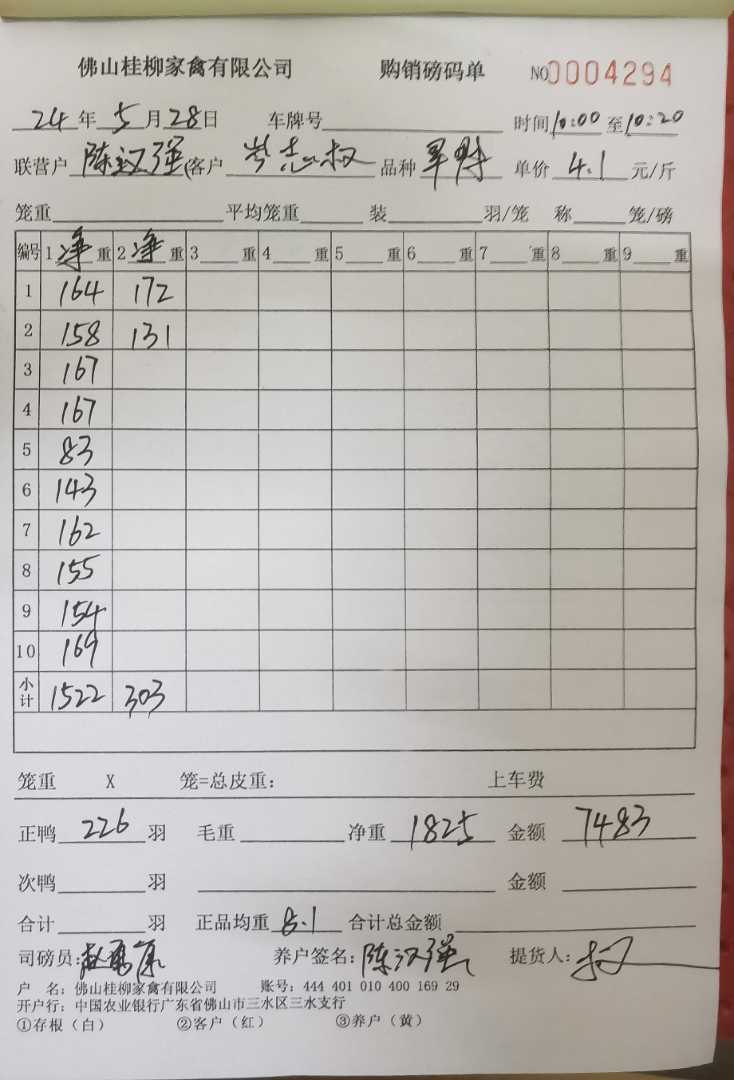 佛山桂柳家禽有限公司 购销磅码单 NO0004294
24年5月28日 车牌号 时间10:00至10:20
联营户 陈汉强 (客户 岑志权 品种 单价 4.1 元/斤
笼重 平均笼重 装 羽/笼 称 笼/磅
编号 1净重 2净重 3 重 4 重 5 重 6 重 7 重 8 重 9 重
1 164 172
2 158 131
3 167
4 167
5 83
6 143
7 162
8 155
9 154
10 169
小计 1522 303
笼重 X 笼=总皮重: 上车费
正鸭 226 羽 毛重 净重 1825 金额 7483
次鸭 羽 金额
合计 羽 正品均重 8.1 合计总金额
司磅员: 养户签名: 陈汉强 提货人: 权
户 名: 佛山桂柳家禽有限公司 账号: 444 401 010 400 169 29
开户行: 中国农业银行广东省佛山市三水区三水支行
①存根（白） ②客户（红） ③养户（黄）